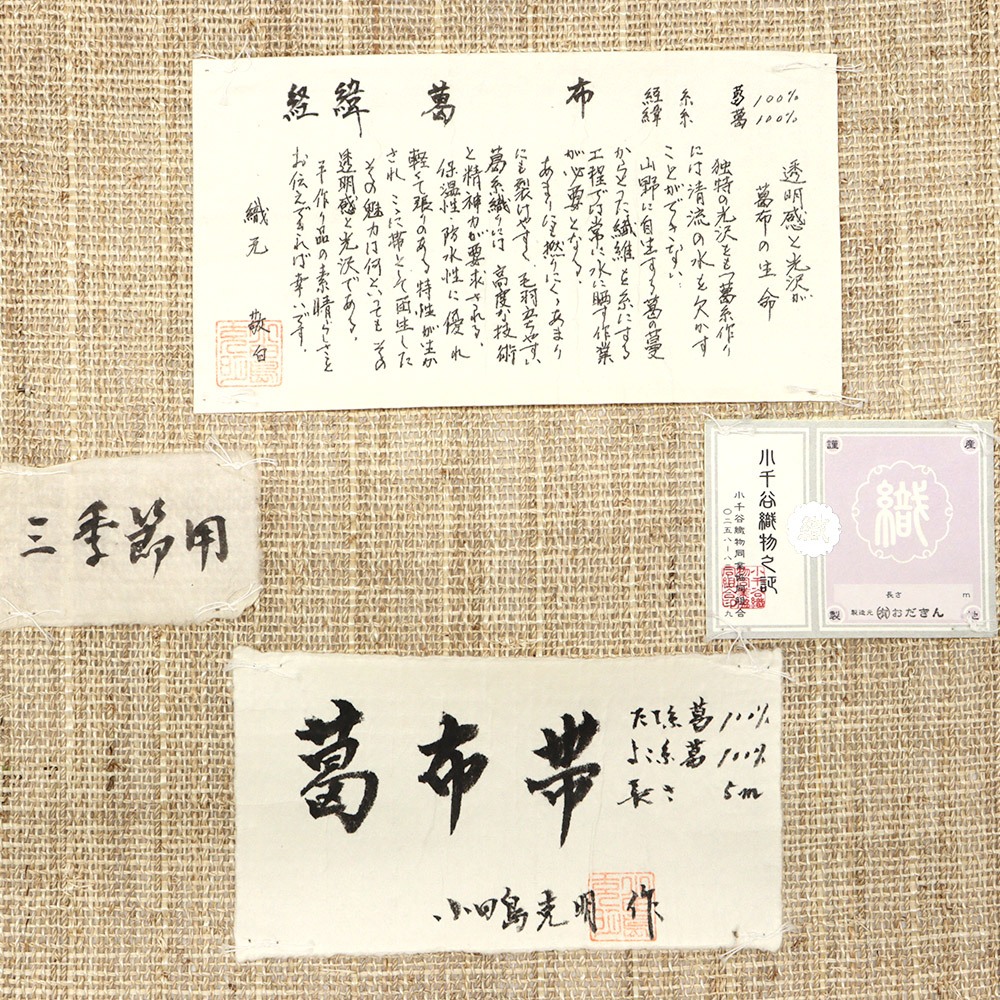 経緯葛布
経糸 葛100%
緯糸 葛100%
透明感と光沢が
葛布の生命
独特の光沢をもつ葛糸作り
には清流の水を欠かす
ことができない。
山野に自生する葛の蔓
からとった繊維を糸にする
工程では常に水に晒す作業
が必要となる。
あまりにも撚りにくくあまり
にも裂けやすく、毛羽立ちやすい
葛糸織りには高度な技術
と精神力が要求される。
保温性、防水性に優れ
軽くて張りのある特性が生か
され ここに帯として再生した
その魅力は何といってもその
透明感と光沢である。
手作り品の素晴らしさを
お伝えできれば幸いです。
織元 敬白
三季節用
小千谷織物之証
小千谷織物同業協同組合
謹
産
製
地
織
長さ m
製造元 おだきん
葛布帯
たて糸葛100%
よこ糸葛100%
長さ 5m
小田島克明 作